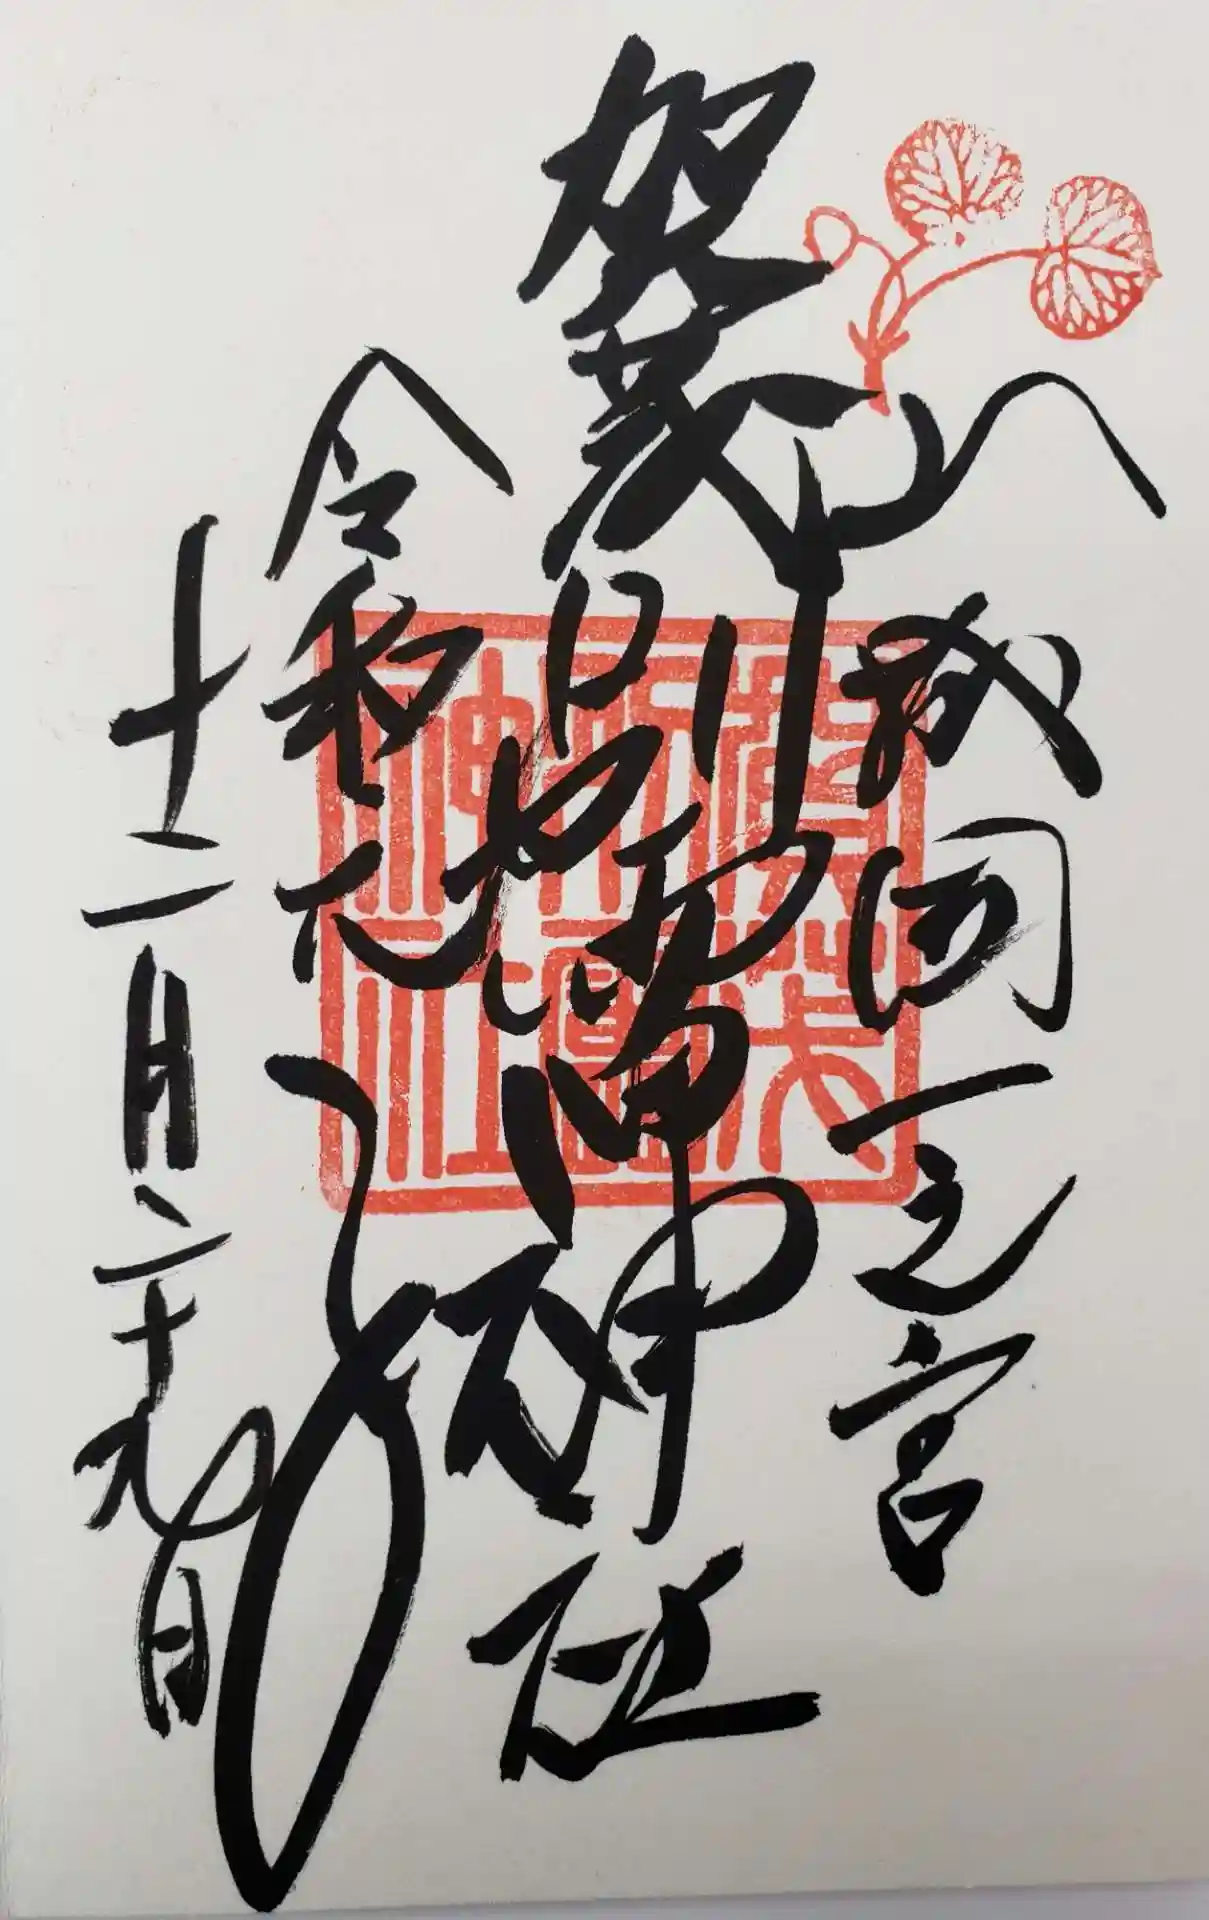 山城国一之宮
賀茂別雷神社
令和元年
十二月二十九日
賀茂
別雷
神社